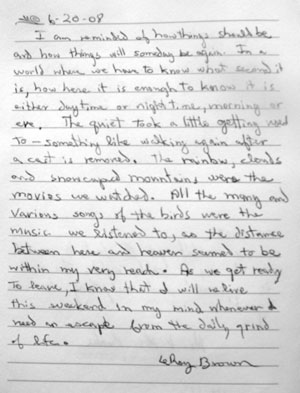 6-20-08
I am reminded of how things should be
and how things will someday be again. In a
world where we have to know what second it
is, how here it is enough to know it is
either daytime or nighttime, morning or
eve. The quiet took a little getting used
to - something like walking again after
a cast is removed. The rainbow, clouds
and snowcaped mountains were the
movies we watched. All the many and
various songs of the birds were the
music we listened to, as the distance
between here and heaven seemed to be
within my very reach. As we get ready
to leave, I know that I will relive
this weekend in my mind whenever I
need an escape from the daily grind
of life.
LeRoy Brown